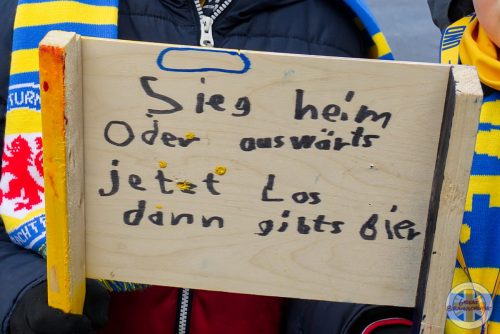 Sieg heim
Oder auswärts
jetzt Los
dann gibts Bier
TURN